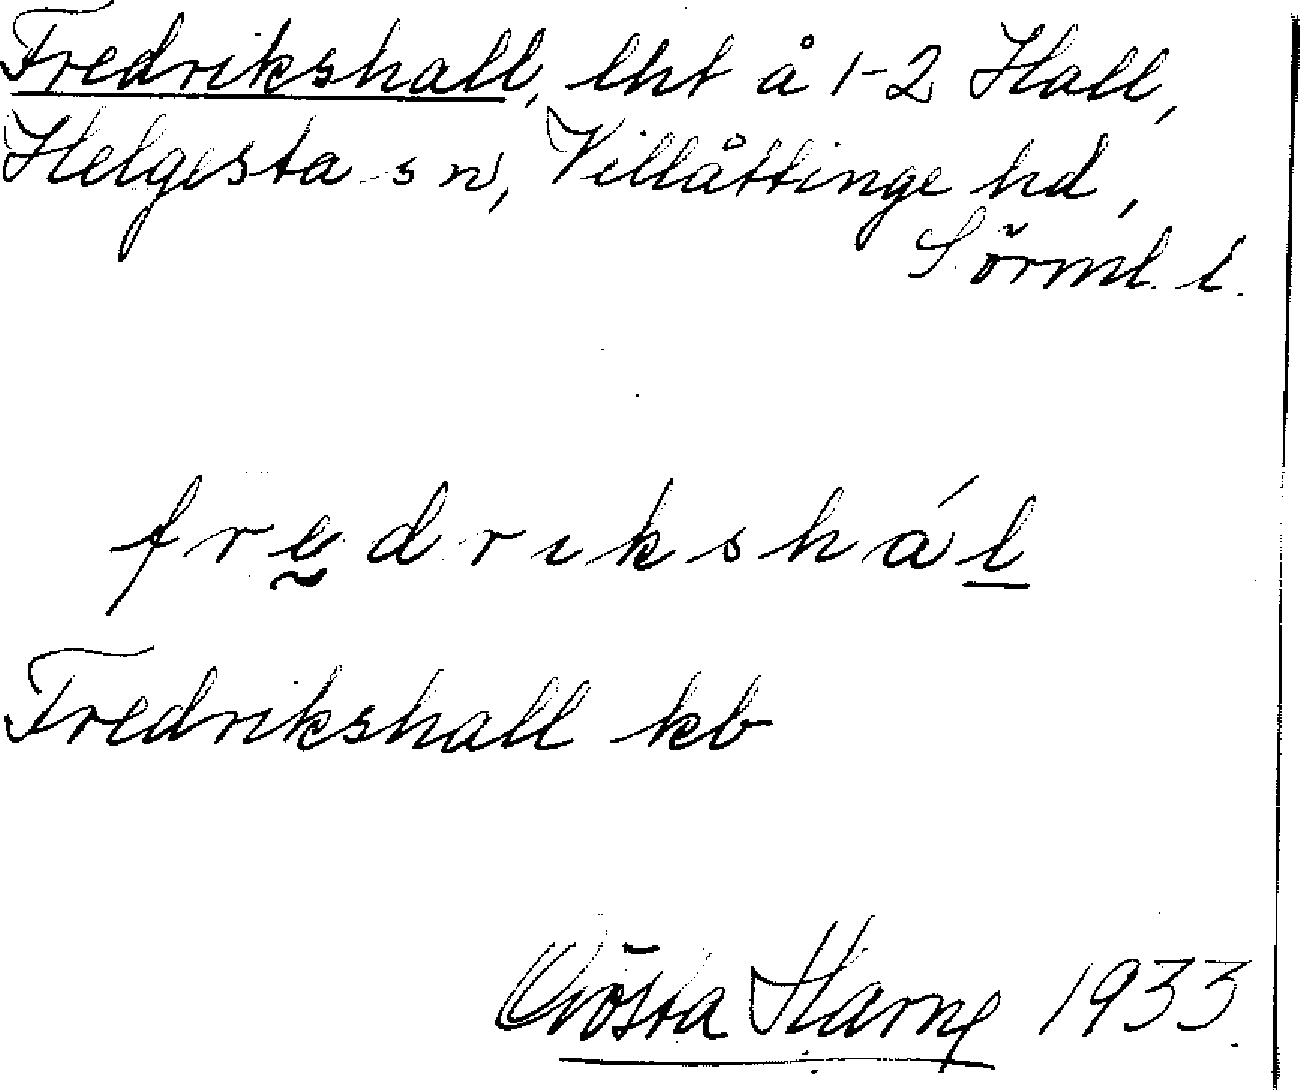 Fredrikshall, lht å 1-2 Hall,
Helgesta sn, Villåttinge hd,
Sörml. l.
fredrikshál
Fredrikshall kb
Gösta Harne 1933.